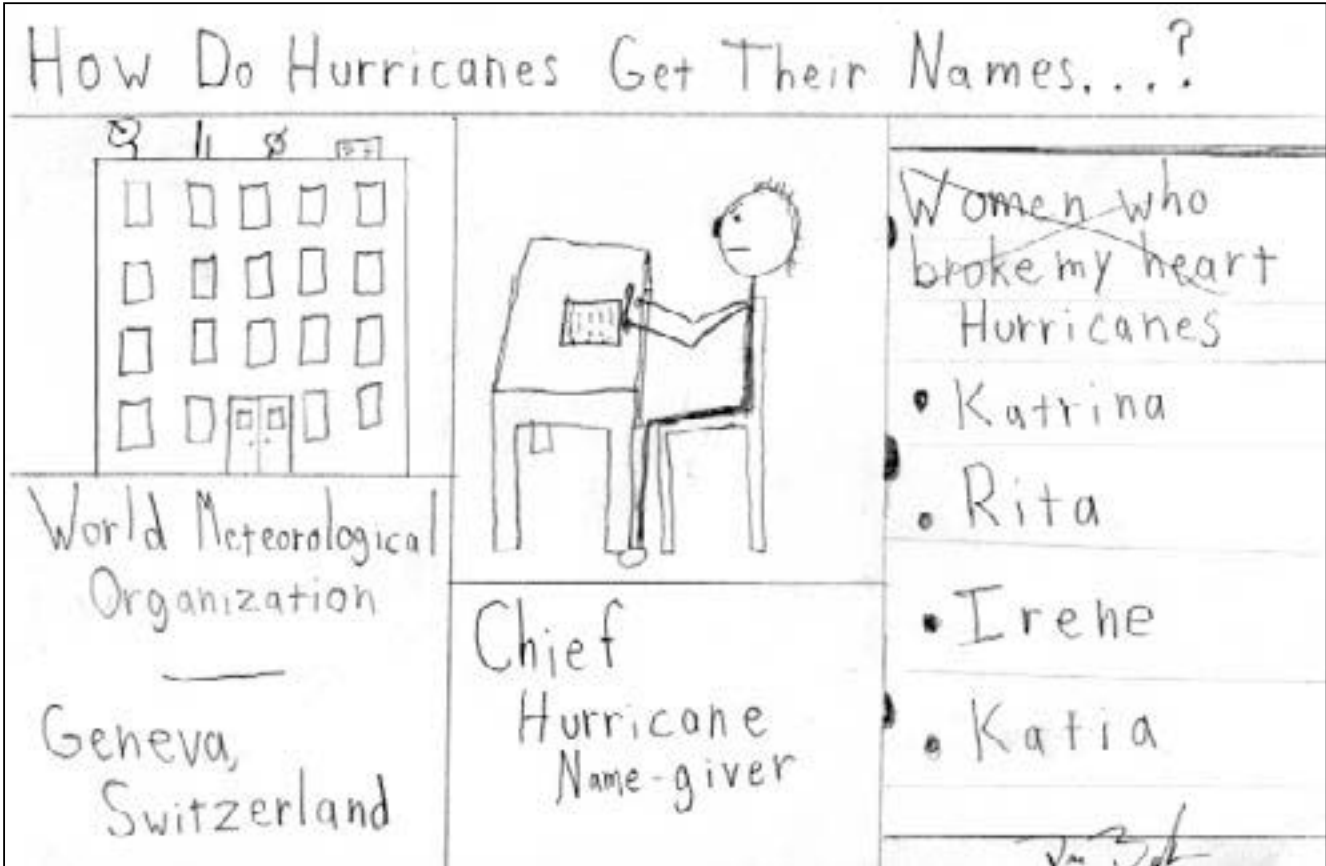 How Do Hurricanes Get Their Names....?
World Meteorological
Organization
Geneva,
Switzerland
Chief
Hurricane
Name-giver
Women who
broke my heart
Hurricanes
• Katrina
• Rita
• Irene
• Katia